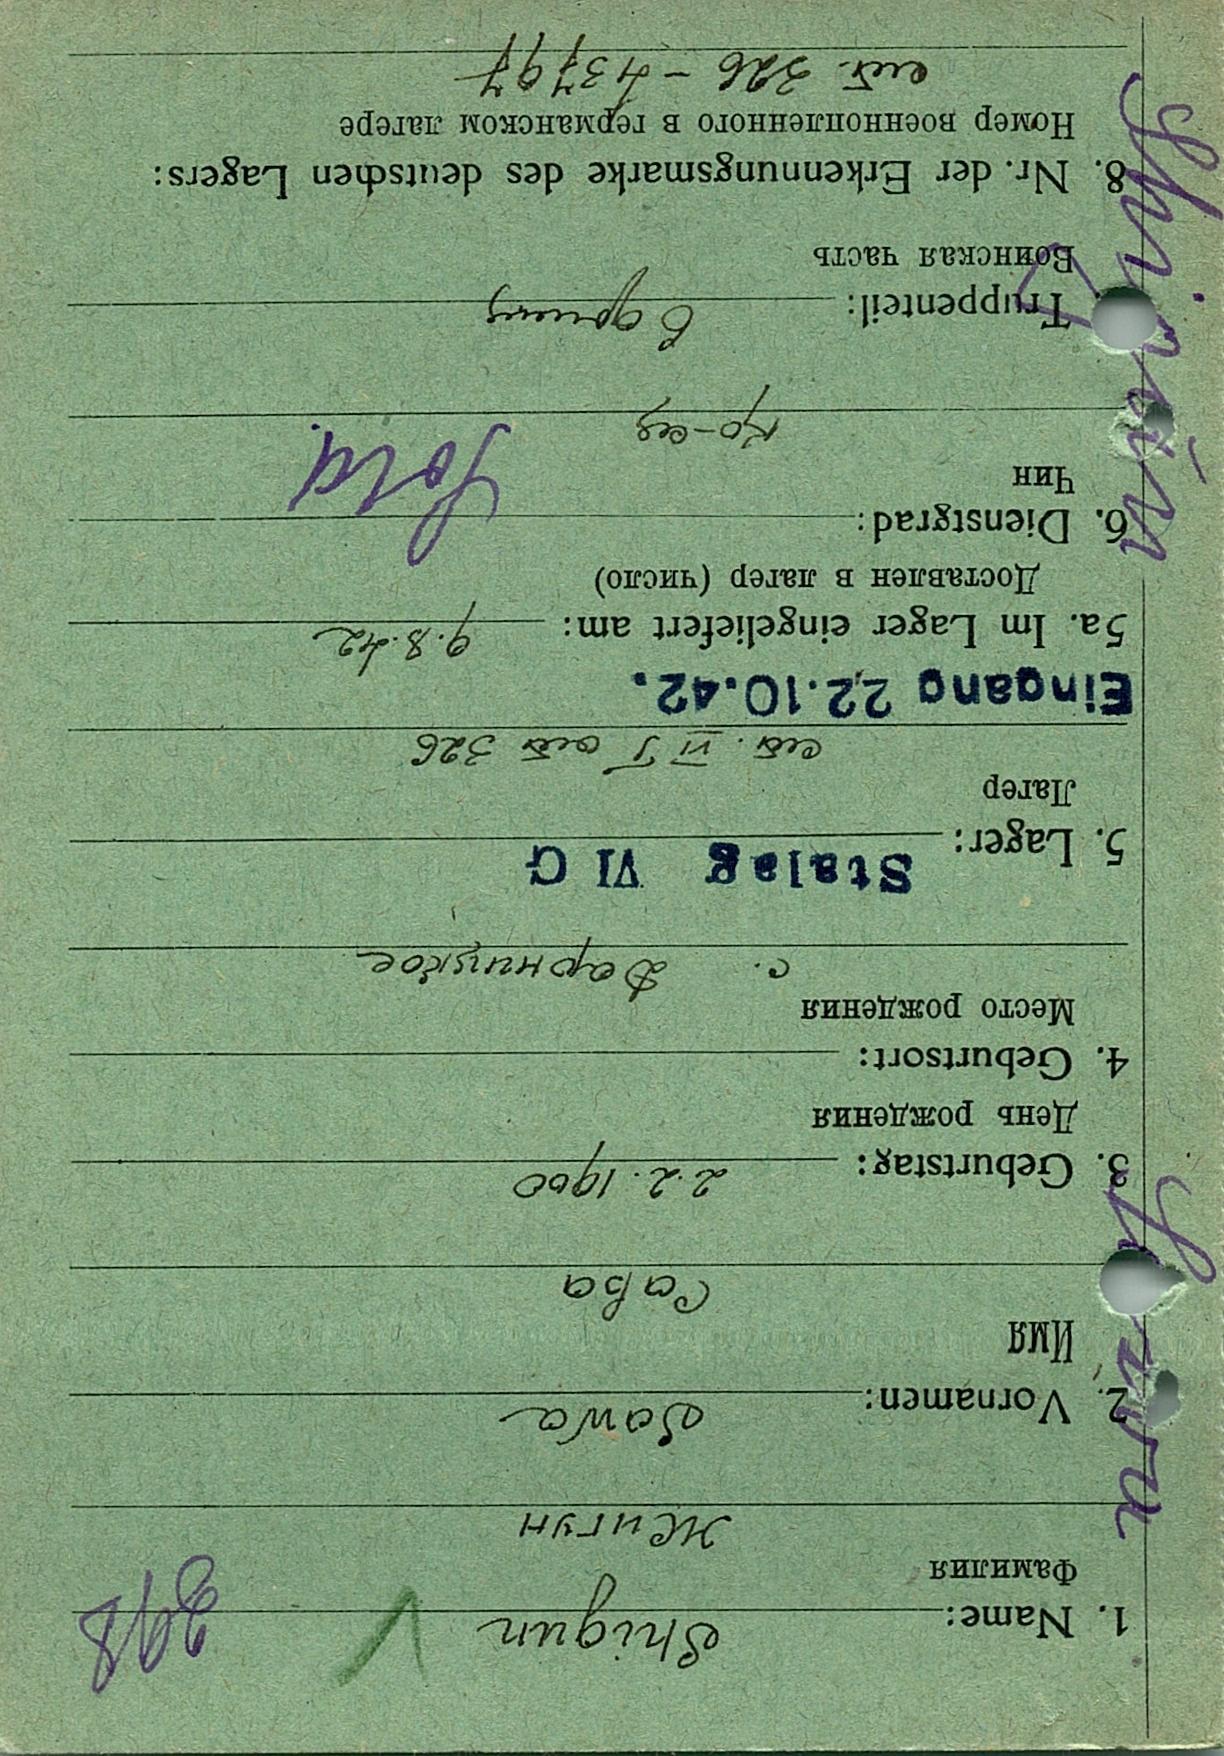 398
1. Name: Shigun
Фамилия
Жигун
2. Vornamen: Sawa
Имя
Сава
3. Geburtstag: 2.2.1900
День рождения
4. Geburtsort:
Место рождения
с. Дарницкое
Stalag VI G
5. Lager:
Лагерь
шт. VI G шт 326
Eingang 22.10.42.
5a. Im Lager eingeliefert am: 9.8.42
Доставлен в лагер (число)
6. Dienstgrad: Sold.
Чин
кр-ец
Truppenteil:
Воинская часть
8. Nr. der Erkennungsmarke des deutschen Lagers:
Номер военнопленного в германском лагере
шт. 326 - 43797
Shigun
Sawa